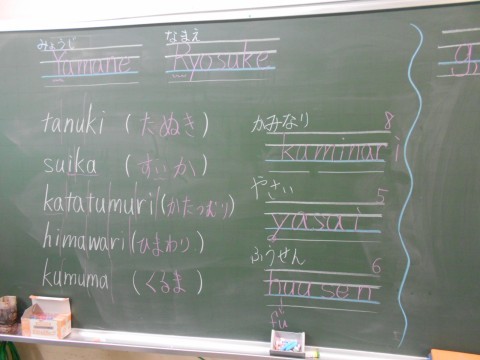 みょうじ
Yamane
なまえ
Ryosuke
tanuki (たぬき)
suika (すいか)
katatumuri (かたつむり)
himawari (ひまわり)
kumuma (くるま)
かみなり
8
kaminari
やさい
5
yasai
ふうせん
6
huusen
fu
g